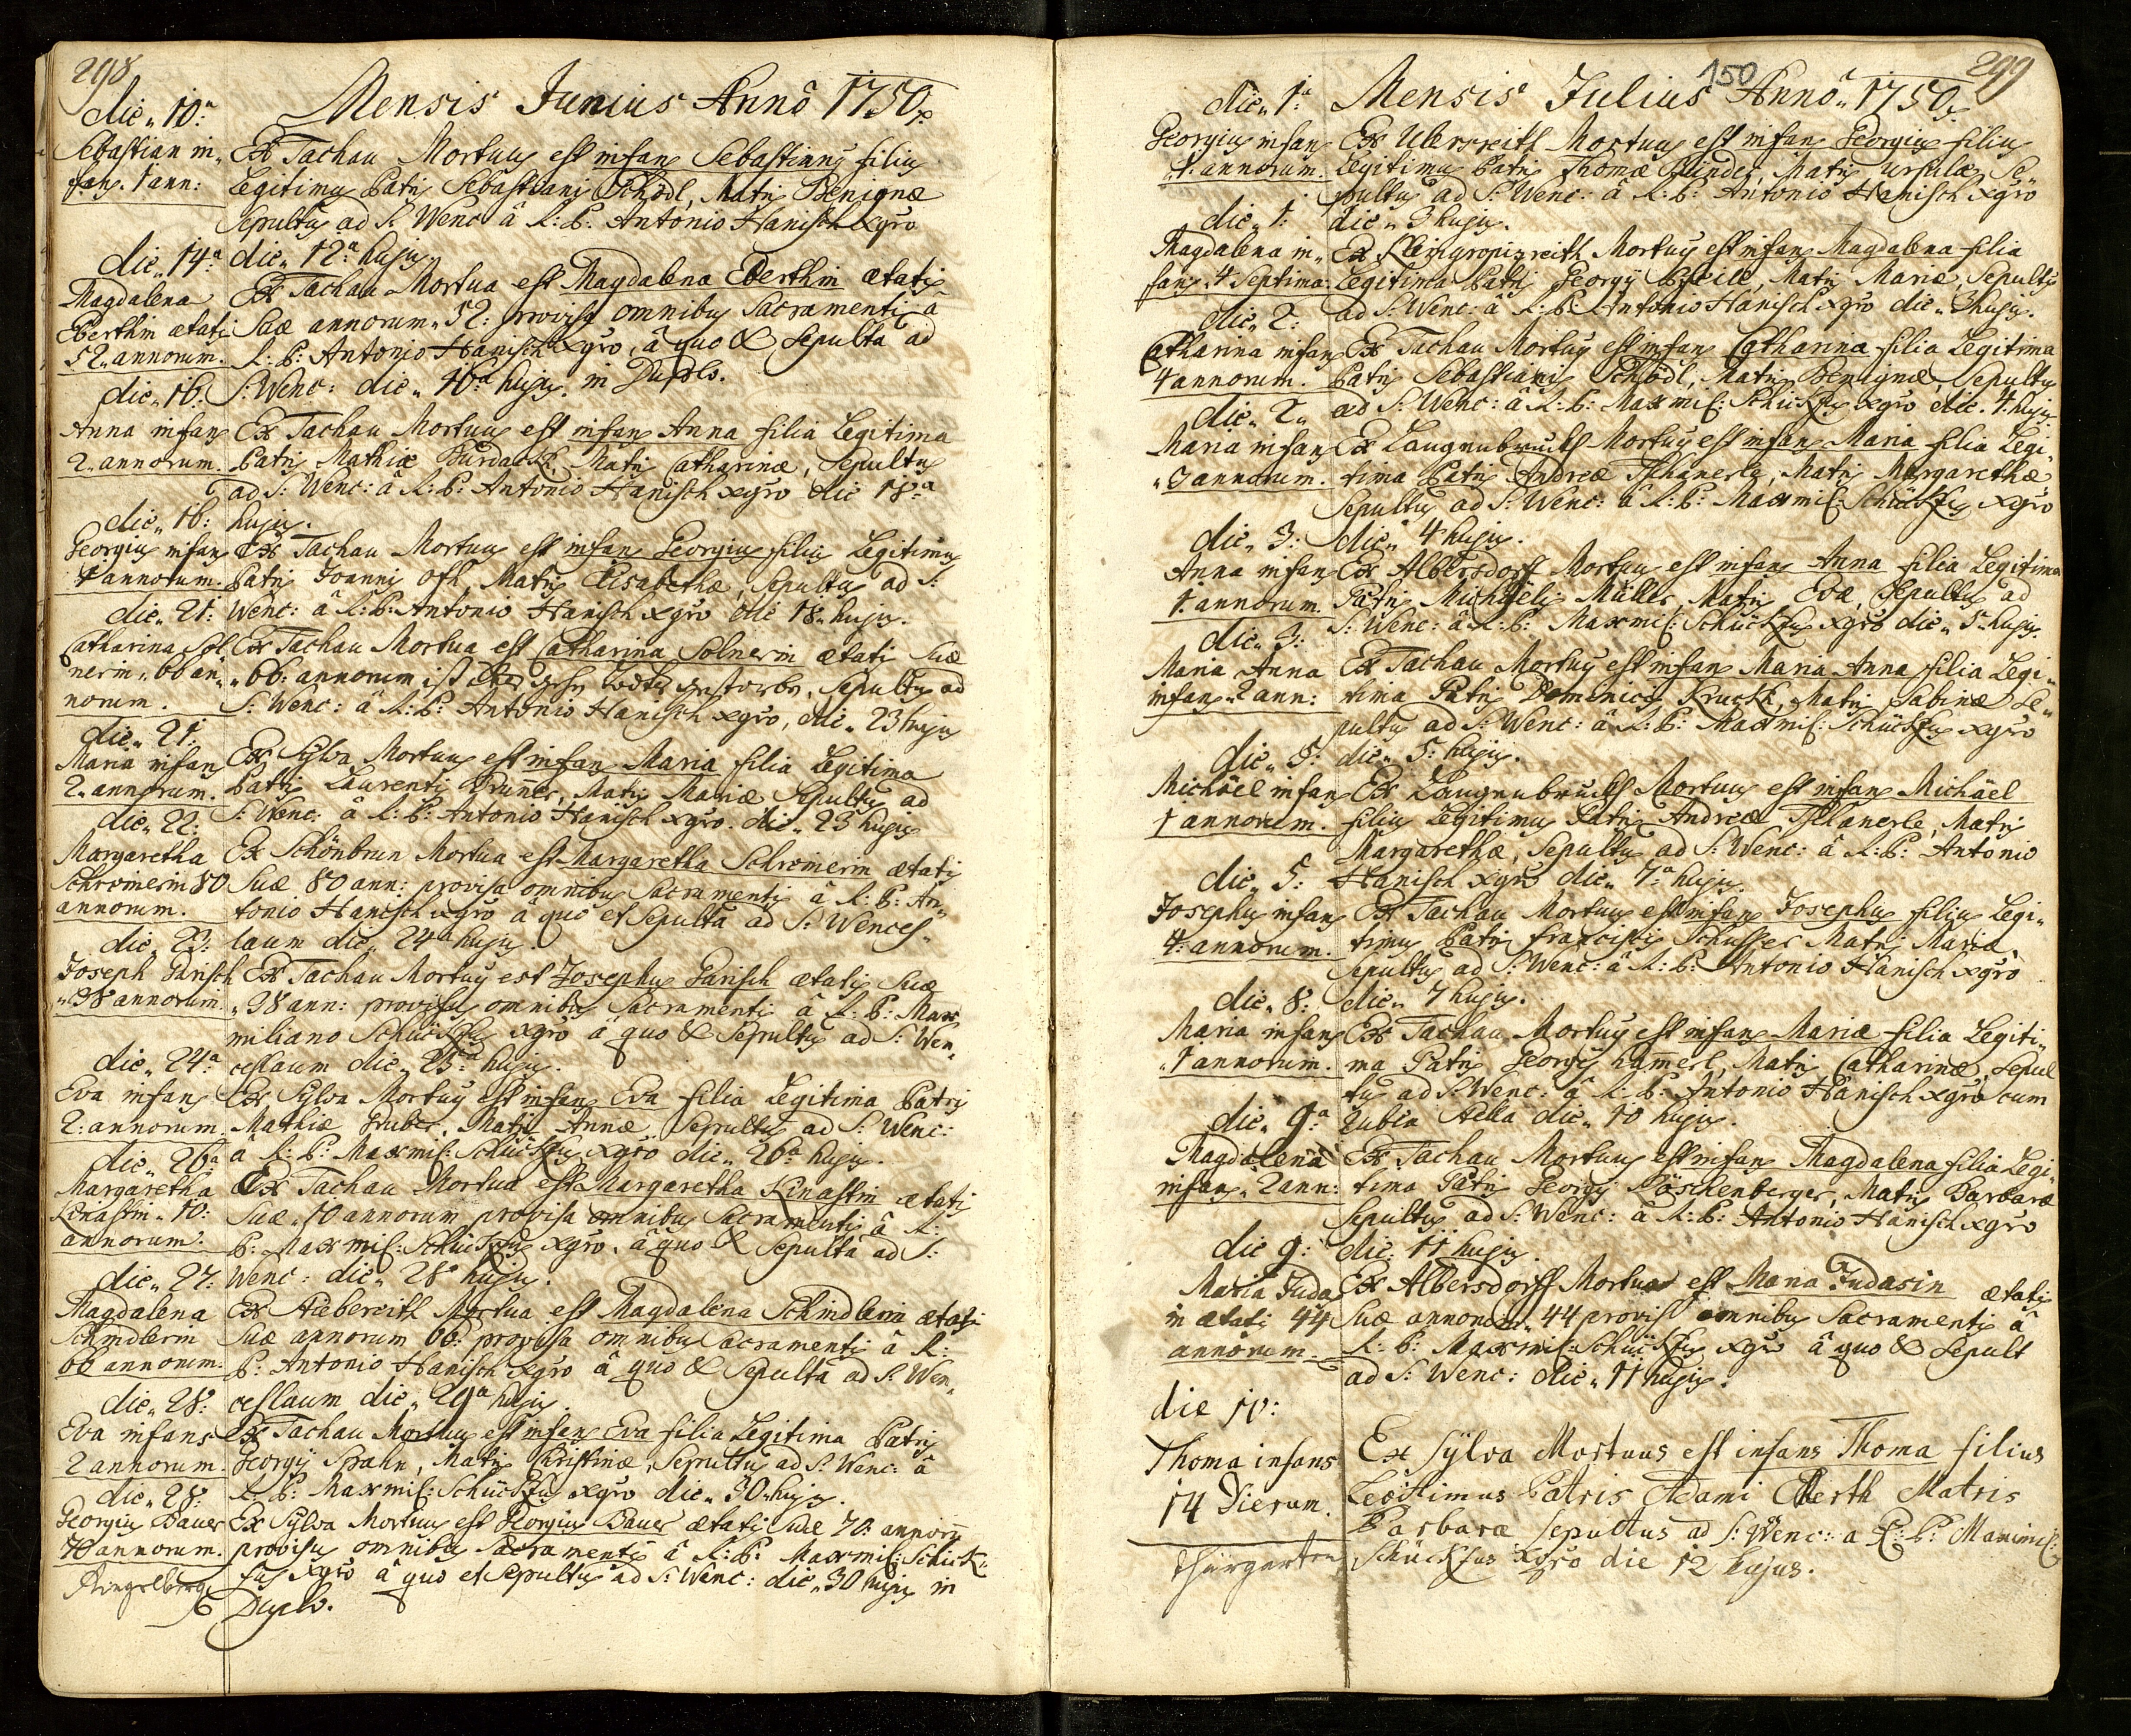 298
Mensis Junius Annô 1750.
die 10:a
Sebastian in-
fans. 1 ann:
Ex Tachau Mortuus est infans Sebastianus filius
Legitimus Patris Sebastiani Schödl, Matris Benignæ
Sepultus ad S: Wenc: â R: P: Antonio Hanisch Xgro
die 12a hujus.
die 14a:
Magdalena
Eberthin ætatis
52 annorum.
Ex Tachau Mortua est Magdalena Eberthin ætatis
Suæ annorum 52: provisa omnibus Sacramentis â
R: P: Antonio Hanisch Xgro, â quo & Sepulta ad
S: Wenc: die 16a hujus. in Duplo.
die 16:
Anna infans
2 annorum.
Ex Tachau Mortuus est infans Anna filia Legitima
Patris Mathiæ Matris Catharinæ, Sepultus
ad S: Wenc: â R: P: Antonio Hanisch Xgro die 18a
hujus.
die 16:
Georgius infans
1 annorum.
Ex Tachau Mortuus est infans Georgius filius Legitimus
Patris Joannis Oth, Matris Elisabethæ, Sepultus ad S:
Wenc: â R: P: Antonio Hanisch Xgro die 18 hujus.
die 21:
Catharina Sol-
nerin 66 an-
norum.
Ex Tachau Mortua est Catharina Solnerin ætatis Suæ
66: annorum ist gestorben, Sepultus ad
S: Wenc: â R: P: Antonio Hanisch Xgro, die 23 hujus
die 21:
Maria infans
2 annorum.
Ex Sylva Mortuus est infans Maria filia Legitima
Patris Laurenti Brunner, Matris Mariæ Sepultus ad
S: Wenc: â R: P: Antonio Hanisch Xgro. die 23 hujus
die 22:
Margaretha
Schreinerin 80
annorum.
Ex Schönbrun Mortua est Margaretha Schreinerin ætatis
Suæ 80 ann: provisa omnibus Sacramentis â R: P: An-
tonio Hanisch Xgro â quo et Sepulta ad S: Wences-
laum die 24a hujus.
die 23:
Joseph Parisch
38 annorum.
Ex Tachau Mortuus est Josephus Parisch ætatis Suæ
38 ann: provisus omnibus Sacramentis â R: P: Max
miliano Schückfus Xgro â quo & Sepultus ad S: Wen-
ceslaum die 25a hujus.
die 24a:
Eva infans
2: annorum.
Ex Sylva Mortuus est infans Eva filia Legitima Patris
Mathiæ Gruber, Matris Annæ Sepultus ad S: Wenc:
â R: P: Maxmil: Schückfus Xgro die 26a hujus.
die 26a:
Margaretha
Kinastin 10:
annorum.
Ex Tachau Mortua est Margaretha Kinastin ætatis
Suæ 10 annorum provisa omnibus Sacramentis â R:
P: Maxmil: Schückfus Xgro. â quo & Sepulta ad S:
Wenc: die 28a hujus.
die 27:
Magdalena
Schindlerin
66 annorum.
Ex Mortua est Magdalena Schindlerin ætatis
Suæ annorum 66: provisa omnibus Sacramentis â R:
P: Antonio Hanisch Xgro â quo & Sepulta ad S: Wen-
ceslaum die 29a hujus.
die 28:
Eva infans
2 annorum.
Ex Tachau Mortuus est infans Eva filia Legitima Patris
Georgÿ Spahn, Matris Christinæ, Sepultus ad S: Wenc: â
R: P: Maxmil: Schückfus Xgro die 30 hujus.
die 28:
Georgius Bauer
70 annorum.
Ringelberg
Ex Sylva Mortuus est Georgius Bauer ætatis Suæ 70: annorum
provisus omnibus Sacramentis â R: P: Maxmil: Schück-
fus Xgro â quo et Sepultus ad S: Wenc: die 30 hujus in
Duplo.
299
150
Mensis Julius Annô 1750.
die 1:a
Georgius infans
1. annorum.
Ex Ulersreith Mortuus est infans Georgius filius
Legitimus Patris Thomæ Matris Ursulæ Se-
pultus ad S: Wenc: â R: P: Antonio Hanisch Xgro
die 3 hujus.
die 1:
Magdalena in-
fans 4 Septima:
Ex Mortuus est infans Magdalena filia
Legitima Patris Georgÿ Matris Mariæ, Sepultus
ad S: Wenc: â R: P: Antonio Hanisch Xgro die 3 hujus.
die 2:
Catharina infans
4 annorum.
Ex Tachau Mortuus est infans Catharina filia Legitima
Patris Sebastiani Schödl, Matris Benignæ, Sepultus
ad S: Wenc: â R: P: Maxmil: Schückfus Xgro die 4. hujus
die 2
Maria infans
3 annorum.
Ex Langenbruck Mortuus est infans Maria filia Legi-
tima Patris Andreæ Tschanerle, Matris Margarethæ
Sepultus ad S: Wenc: â R: P: Maxmil: Schückfus Xgro
die 4 hujus.
die 3:
Anna infans
1. annorum.
Ex Albersdorff Mortuus est infans Anna filia Legitima
Patris Michäelis Müller, Matris Evæ, Sepultus ad
S: Wenc: â R: P: Maxmil: Schückfus Xgro die 5 hujus.
die 3:
Maria Anna
infans 2 ann:
Ex Tachau Mortuus est infans Maria Anna filia Legi-
tima Patris Dominici Kruckh, Matris Sabinæ Se-
pultus ad S: Wenc: â R: P: Maxmil: Schückfus Xgro
die 5: hujus.
die 5:
Michäel infans
1 annorum.
Ex Langenbruck Mortuus est infans Michäel
filius Legitimus Patris Andreæ Tschanerle, Matris
Margarethæ, Sepultus ad S: Wenc: â R: P: Antonio
Hanisch Xgro die 7a hujus.
die 5:
Josephus infans
4: annorum.
Ex Tachau Mortuus est infans Josephus filius Legi-
timus Patris Francisci Schusser Matris Mariæ,
Sepultus ad S: Wenc: â R: P: Antonio Hanisch Xgro
die 7 hujus.
die 8:
Maria infans
1 annorum.
Ex Tachau Mortuus est infans Mariæ filia Legiti-
ma Patris Georgÿ Hamerl, Matris Catharinæ, Sepul
tus ad S: Wenc: â R: P: Antonio Hanisch Xgro cum
die 10 hujus.
die 9:a
Magdalena
infans 2 ann:
Ex Tachau Mortuus est infans Magdalena filia Legi-
tima Patris Georgÿ Röschenberger, Matris Barbaræ
Sepultus ad S: Wenc: â R: P: Antonio Hanisch Xgro
die 11 hujus.
die 9:
Maria Judas
in ætatis 44
annorum.
Ex Albersdorff Mortua est Maria Judasin ætatis
Suæ annorum 44 provisa omnibus Sacramentis â
R: P: Maxmil: Schückfus Xgro â quo & Sepult
ad S: Wenc: die 11 hujus.
die 10:
Thoma infans
14 Dierum.
Thürgarten
Ex Sÿlva Mortuus est infans Thoma filius
Legitimus Patris Adami Eberth Matris
Barbaræ Sepultus ad S: Wenc: a R: P: Maximil:
Schückfus Xgro die 12 hujus.